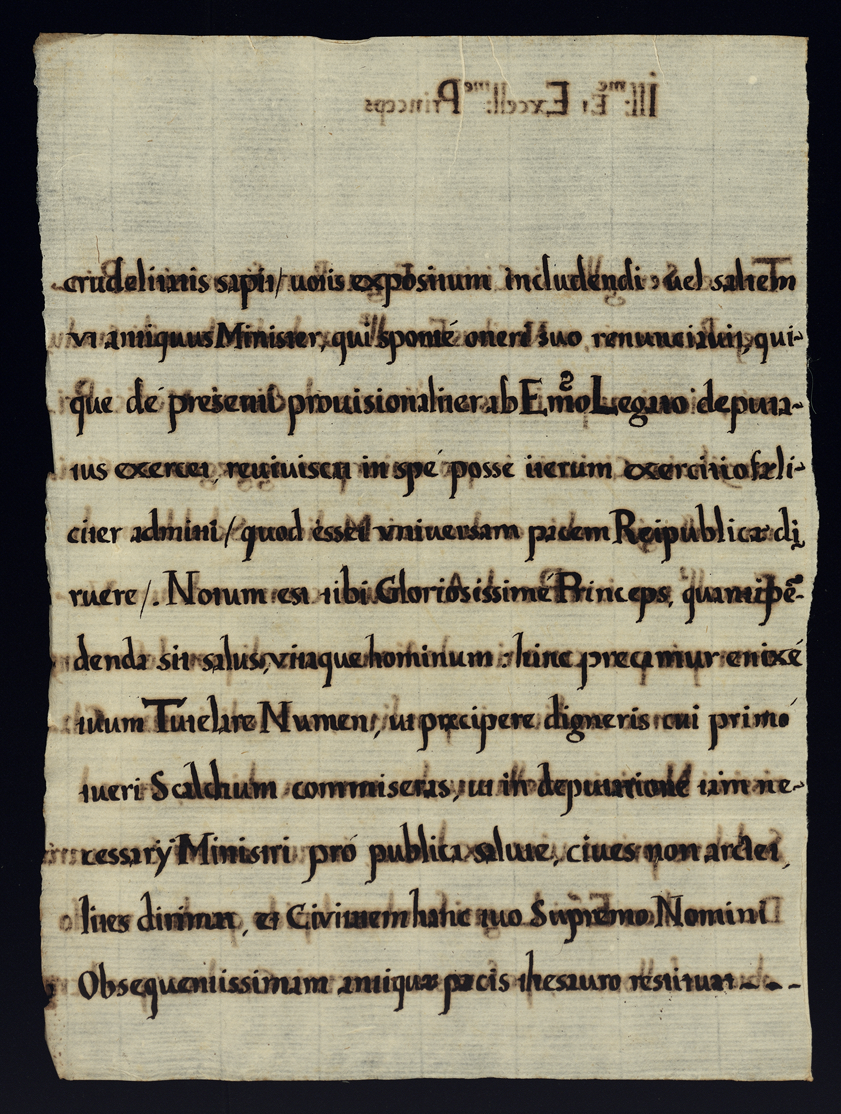 Ill:me Et Excell:me Princeps
crudelitatis sapit/ uotis expositum includendi: uel saltem
vt antiquus Minister, qui sponté oneri suo renunciauit, qui-
que dé presenti prouisionaliter ab Emo Legato deputa-
tus exercet, reuiuiscat in spé posse iterum exercitio fæli-
citer admitti /quod esset vniuersam pacem Reipublicæ di
ruere/. Notum est tibi Gloriosissimé Princeps, quanti pē-
denda sit salus, vitaque hominum: hinc precamur enixé
tuum Tutelare Numen, ut præcipere digneris cui primó
tueri Scalchum commiseras, ut in deputationé tam ne-
cessarÿ Ministri pró publica salute, ciues non arctet,
lites dirimat, et Civitatem hanc tuo Supremo Nomini
Obsequentissimam antiquæ pacis thesauro restituat - - -